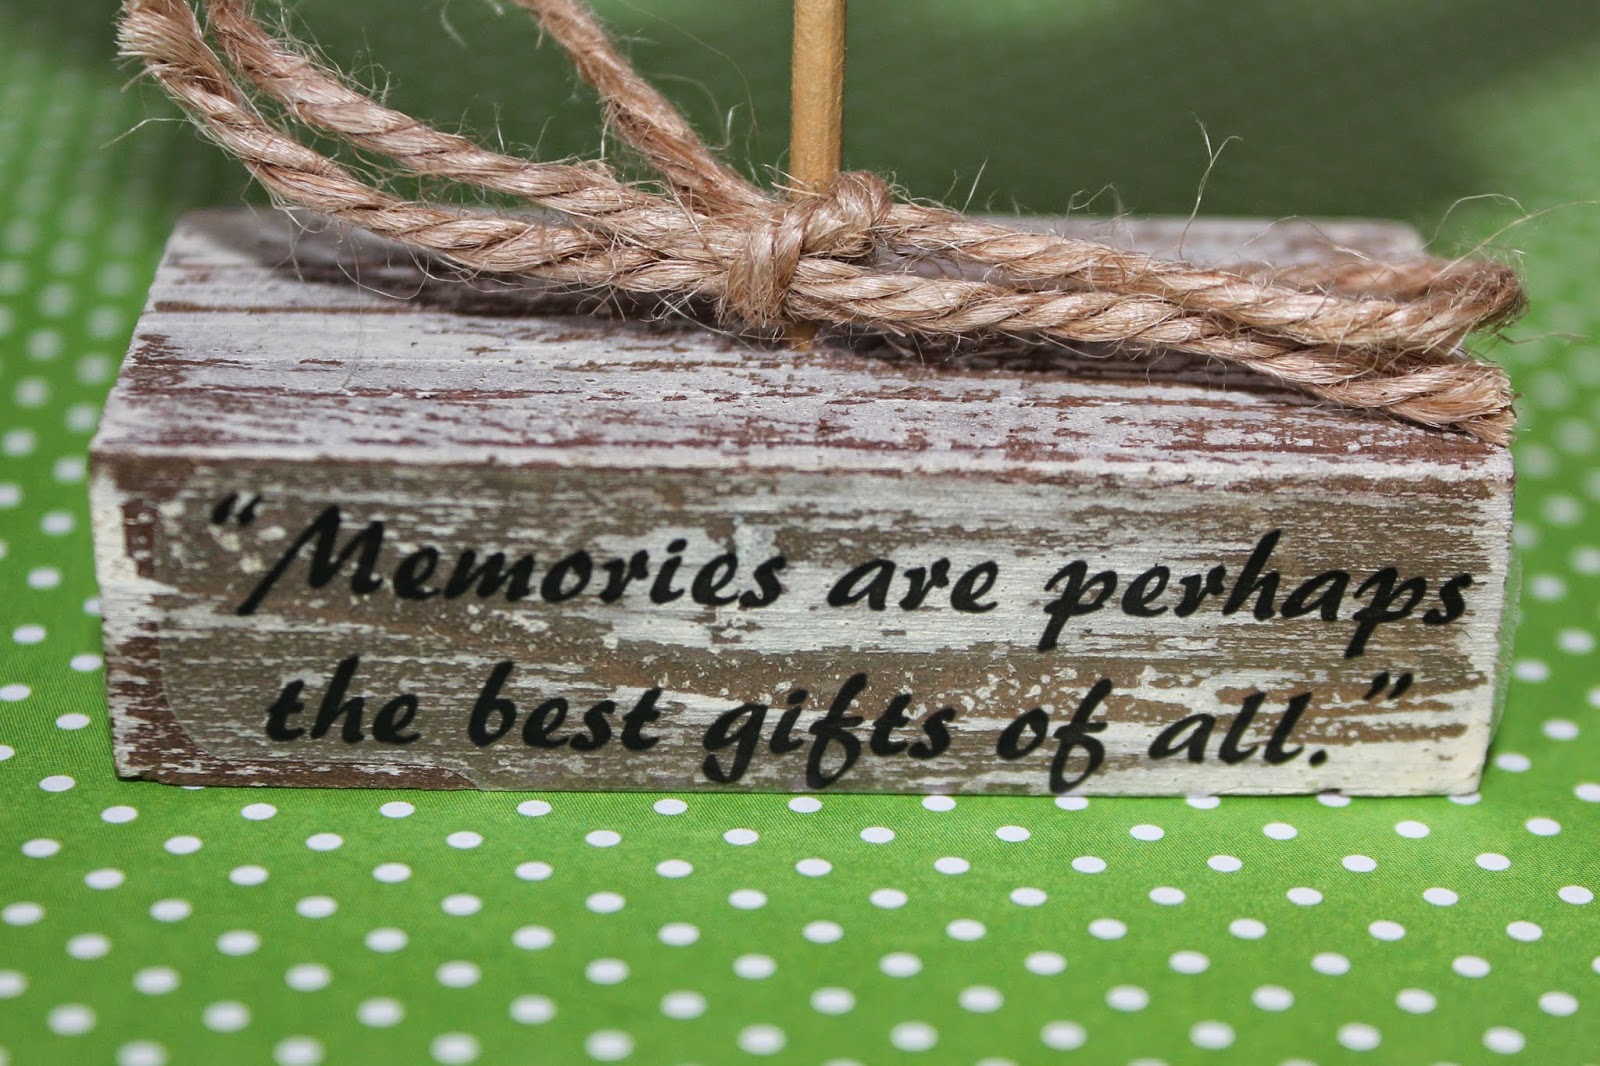 “Memories are perhaps
the best gifts of all.”